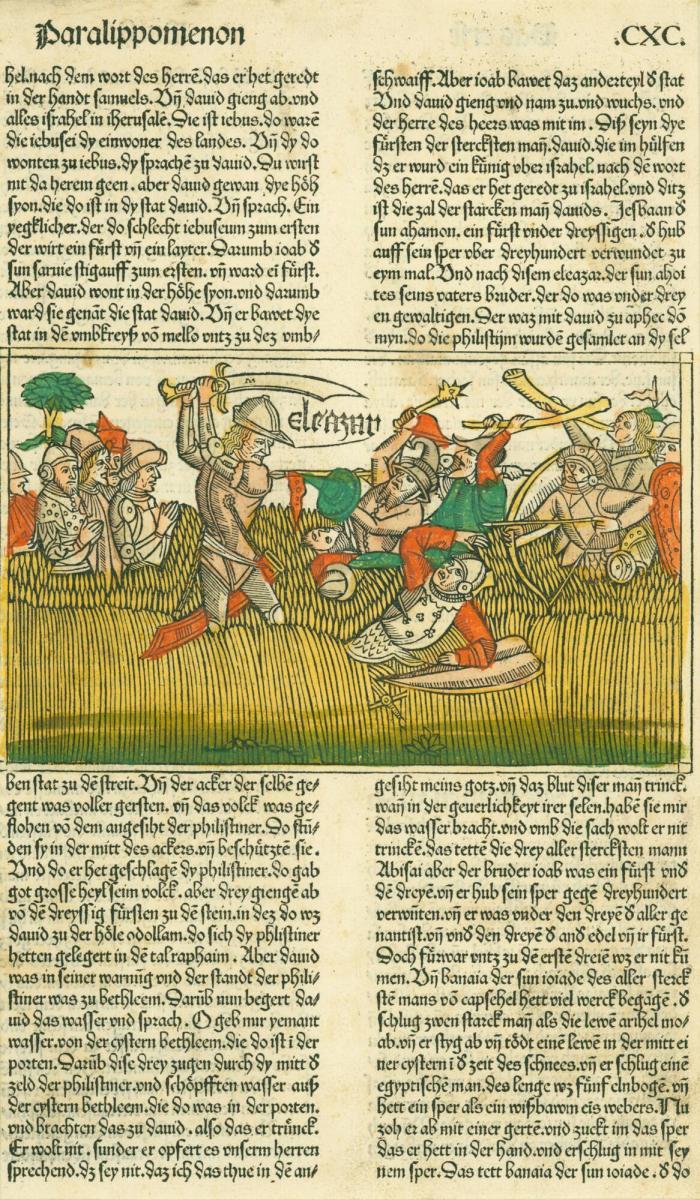 Paralippomenon
.CXC.
hel.nach dem wort des herrẽ.das er het geredt
in der handt samuels.Vñ dauid gieng ab.vnd
alles israhel in iherusalẽ.Die ist iebus.do warẽ
die iebusei dy einwoner des landes. Vñ dy do
wonten zu iebus.dy sprachẽ zu dauid.Du wirst
nit da herein geen . aber dauid gewan dye höh
syon.die do ist in dy stat dauid. Vñ sprach. Ein
yegklicher.der do schlecht iebuseum zum ersten
der wirt ein fürst vñ ein layter.Darumb ioab ď
sun saruie stigauff zum ersten. vñ ward ei fürst.
Aber dauid wont in der höhe syon.vnd darumb
ward sie genãt die stat dauid. Vñ er bawet dye
stat in dẽ vmbkreyß võ mello vntz zu dez vmb/
schwaiff.Aber ioab bawet daz anderteyl ď stat
Vnd dauid gieng vnd nam zu.vnd wuchs. vnd
der herre des heers was mit im . Diß seyn dye
fürsten der stercksten mañ.dauid.die im hülfen
dz er wurd ein künig vber israhel. nach dẽ wort
des herrẽ.das er het geredt zu israhel.vnd ditz
ist die zal der starcken mañ dauids . Jesbaan ď
sun ahamon. ein fürst vnder dreyssigen . ď hub
auff sein sper vber dreyhundert verwundet zu
eym mal.Vnd nach disem eleazar.der sun ahoi
tes seins vaters bruder.der do was vnder drey
en gewaltigen.Der waz mit dauid zu aphec dõ
myn.do die philistijm wurdẽ gesamlet an dy sel
eleazar
ben stat zu dẽ streit. Vñ der acker der selbẽ ge/
gent was voller gersten. vñ das volck was ge/
flohen võ dem angesiht der philistiner.Do stũ/
den sy in der mitt des ackers.vñ beschütztẽ sie .
Vnd do er het geschlagẽ dy philistiner.do gab
got grosse heyl seim volck. aber drey giengẽ ab
võ dẽ dreyssig fürsten zu dẽ stein.in dez do wz
dauid zu der höle odollam.do sich dy philistiner
hetten gelegert in dẽ tal raphaim . Aber dauid
was in seiner warnũg vnd der standt der phili/
stiner was zu bethleem.Darũb nun begert da/
uid das wasser vnd sprach . O geb mir yemant
wasser.von der cystern bethleem.die do ist ĩ der
porten. Darũb dise drey zugen durch dy mitt ď
zeld der philistiner.vnd schöpfften wasser auß
der cystern bethleem.die do was in der porten.
vnd brachten das zu dauid . also das er trũnck.
Er wolt nit . sunder er opfert es vnserm herren
sprechend.dz sey nit.daz ich das thue in dẽ an/
gesiht meins gotz.vñ daz blut diser mañ trinck.
wañ in der geuerlichkeyt irer selen.habẽ sie mir
das wasser bracht.vnd vmb die sach wolt er nit
trinckẽ.das tettẽ die drey aller stercksten mann
Abisai aber der bruder ioab was ein fürst vnď
dẽ dreyẽ.vñ er hub sein sper gegẽ dreyhundert
verwũten.vñ er was vnder den dreyẽ ď aller ge
nantist.vñ vnď den dreyẽ ď anď edel vñ ir fürst.
Doch fürwar vntz zu dẽ erstẽ dreiẽ wz er nit kũ
men. Vñ banaia der sun ioiade des aller sterck
stẽ mans võ capschel hett viel werck begãgẽ . ď
schlug zwen starck mañ als die lewẽ arihel mo/
ab.vñ er styg ab vñ tödt einẽ lewẽ in der mitt ei
ner cystern ĩ ď zeit des schnees.vñ er schlug einẽ
egyptischẽ man.des lenge wz fünf elnbogẽ. vñ
hett ein sper als ein wißbawm eĩs webers.Nu
zoh er ab mit einer gertẽ.vnd zuckt im das sper
das er hett in der hand.vnd erschlug in mit sey
nem sper.Das tett banaia der sun ioiade . ď do